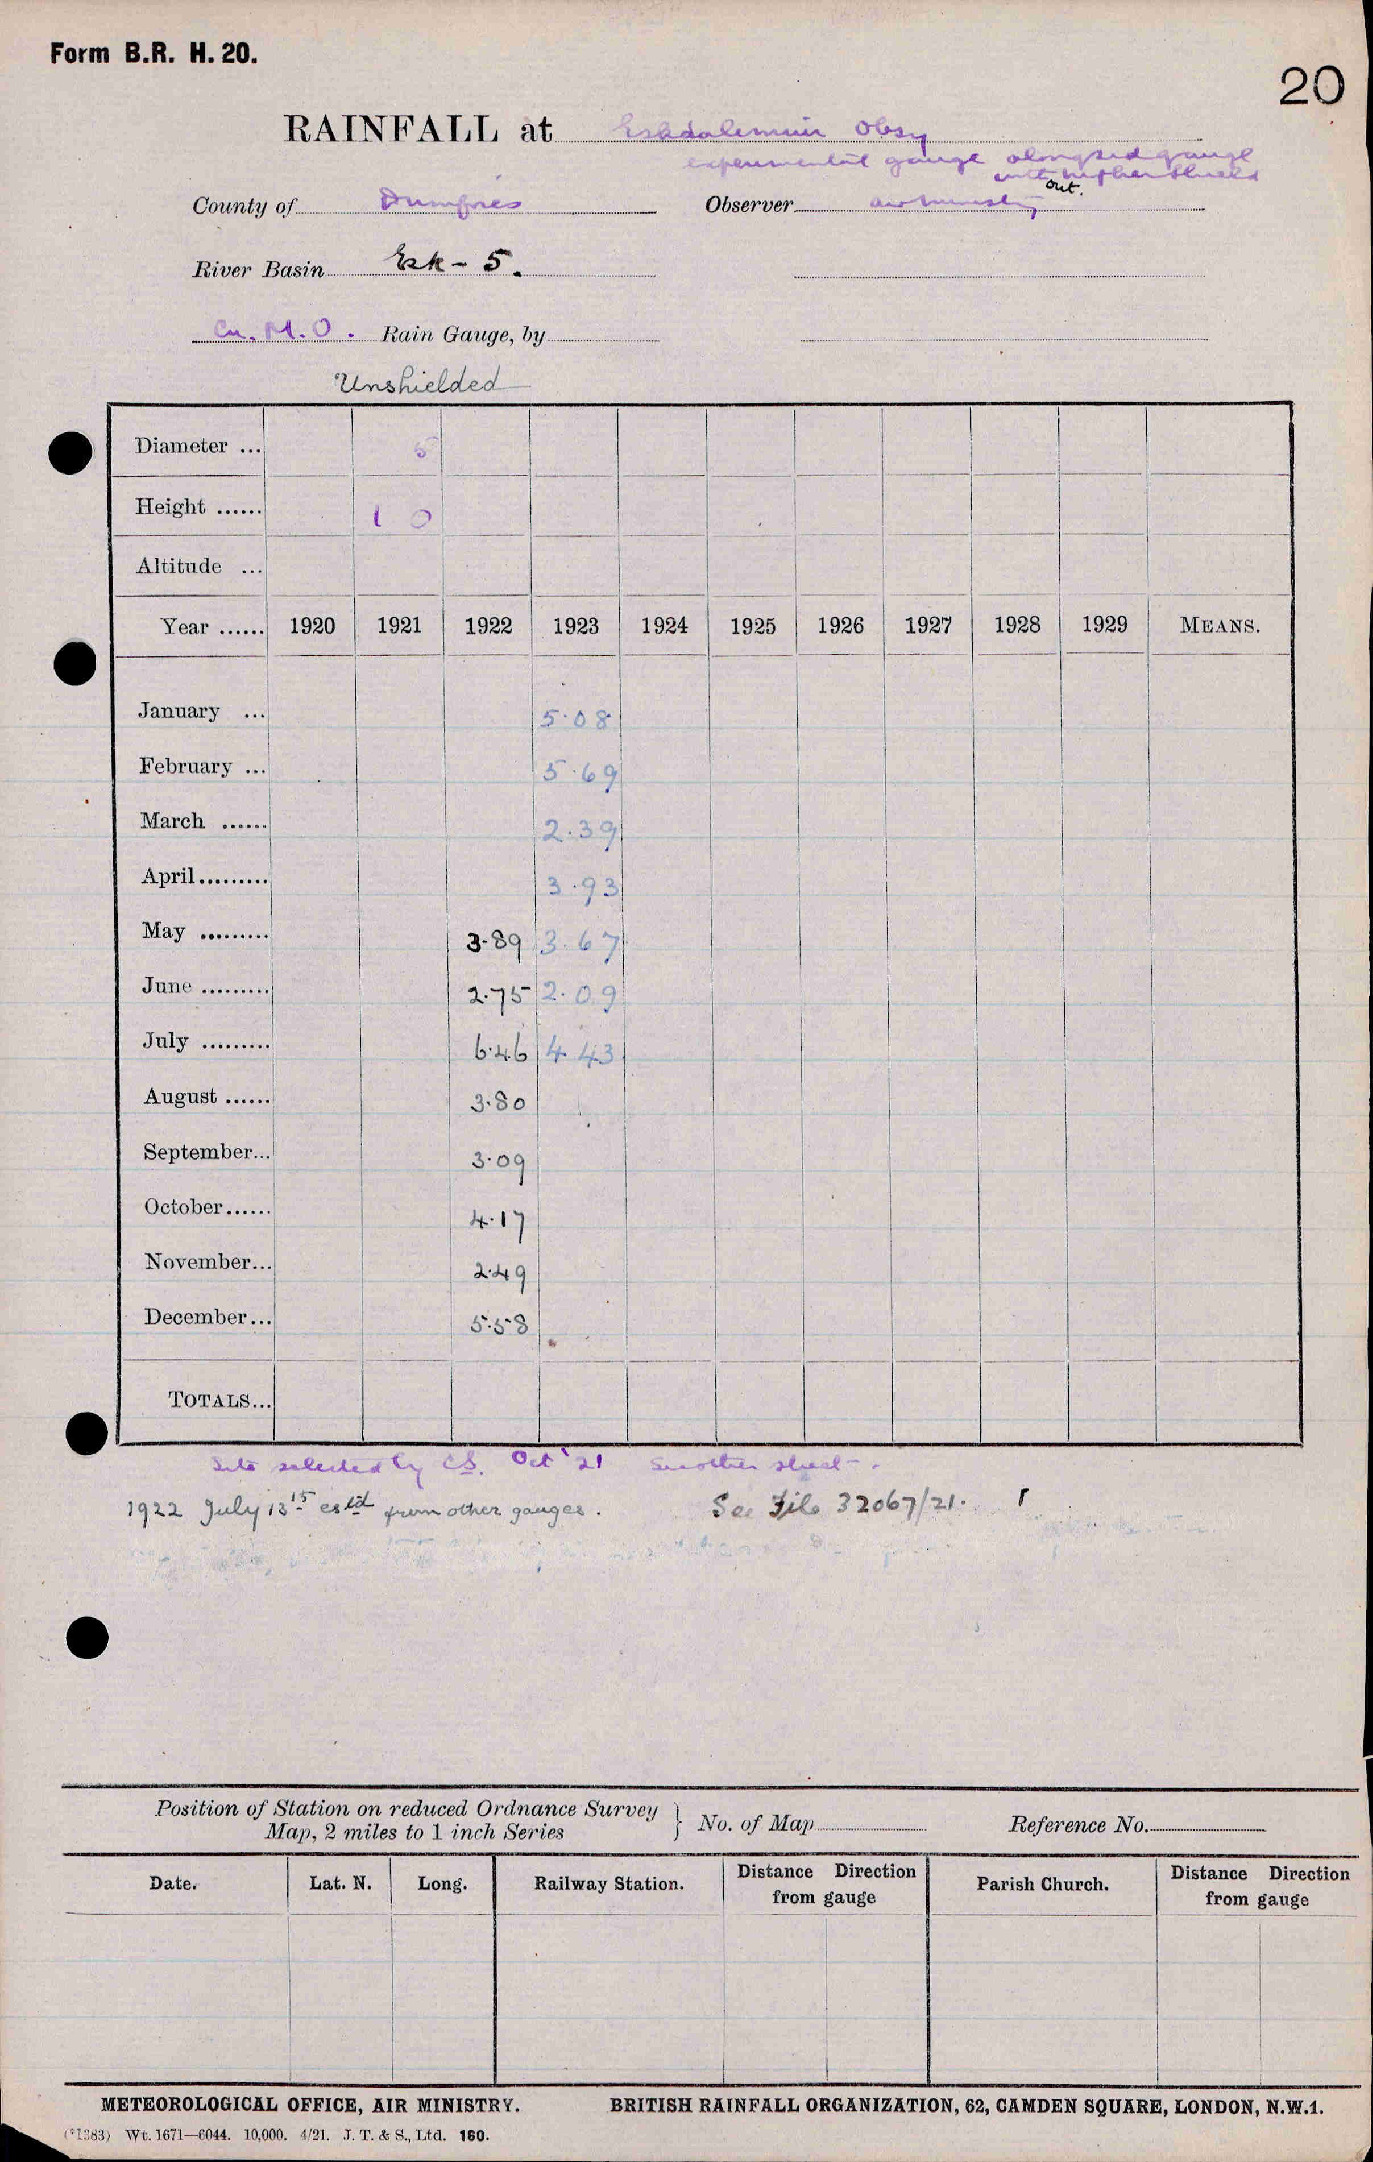 Form B.R. H. 20.
20
RAINFALL at Eskdalemuir Obsy
experimental gauge alongside gauge
with nipher shield
out.
County of Dumfries Observer
River Basin Esk - 5.
Cu. M.O. Rain Gauge, by
Unshielded
Diameter ... 5
Height ...... 1 0
Altitude ...
Year ...... 1920 1921 1922 1923 1924 1925 1926 1927 1928 1929 MEANS.
January ... 5.08
February ... 5.69
March ...... 2.39
April ......... 3.93
May ......... 3.89 3.67
June ......... 2.75 2.09
July ......... 6.46 4.43
August ...... 3.80
September... 3.09
October...... 4.17
November... 2.49
December... 5.58
TOTALS...
Site selected by C.S. Oct '21 See other sheet.
1922 July 13 15 estd from other gauges. See File 32067/21.
Position of Station on reduced Ordnance Survey
Map, 2 miles to 1 inch Series } No. of Map Reference No.
Date. Lat. N. Long. Railway Station. Distance Direction from gauge Parish Church. Distance Direction from gauge
METEOROLOGICAL OFFICE, AIR MINISTRY. BRITISH RAINFALL ORGANIZATION, 62, CAMDEN SQUARE, LONDON, N.W.1.
(*1383) Wt. 1671—6044. 10,000. 4/21. J. T. & S., Ltd. 160.